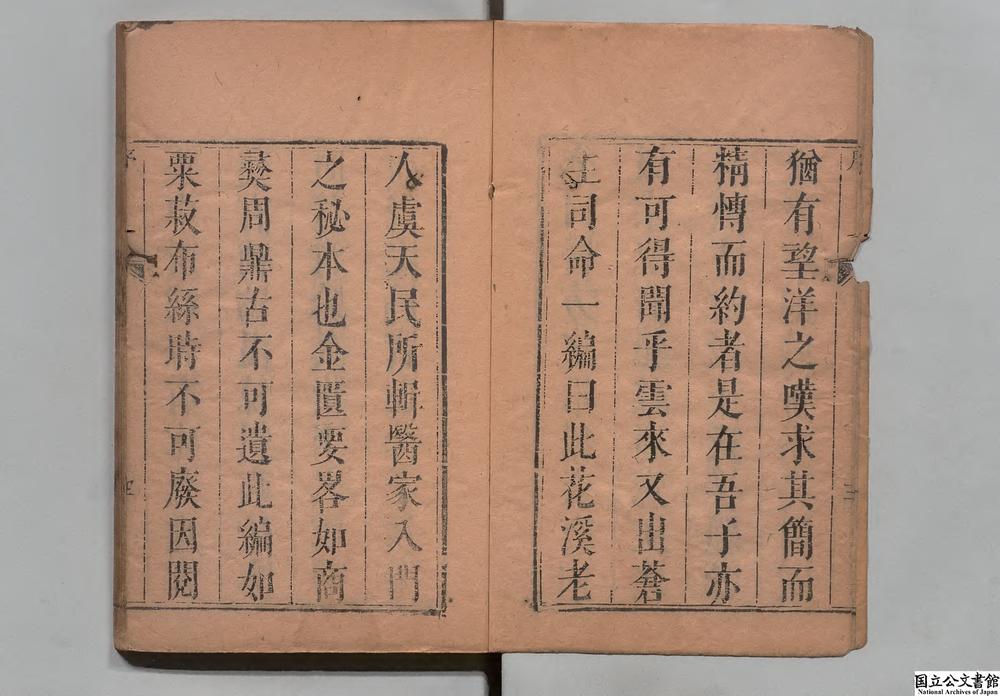 猶有望洋之嘆求其簡而
精慱而約者是在吾子亦
有可得聞乎雲來又出蒼
生司命一編曰此花溪老
人虞天民所輯醫家入門
之秘本也金匱要畧如商
彞周鼎古不可遺此編如
粟菽布絲時不可廢因閱
序
国立公文書館
National Archives of Japan